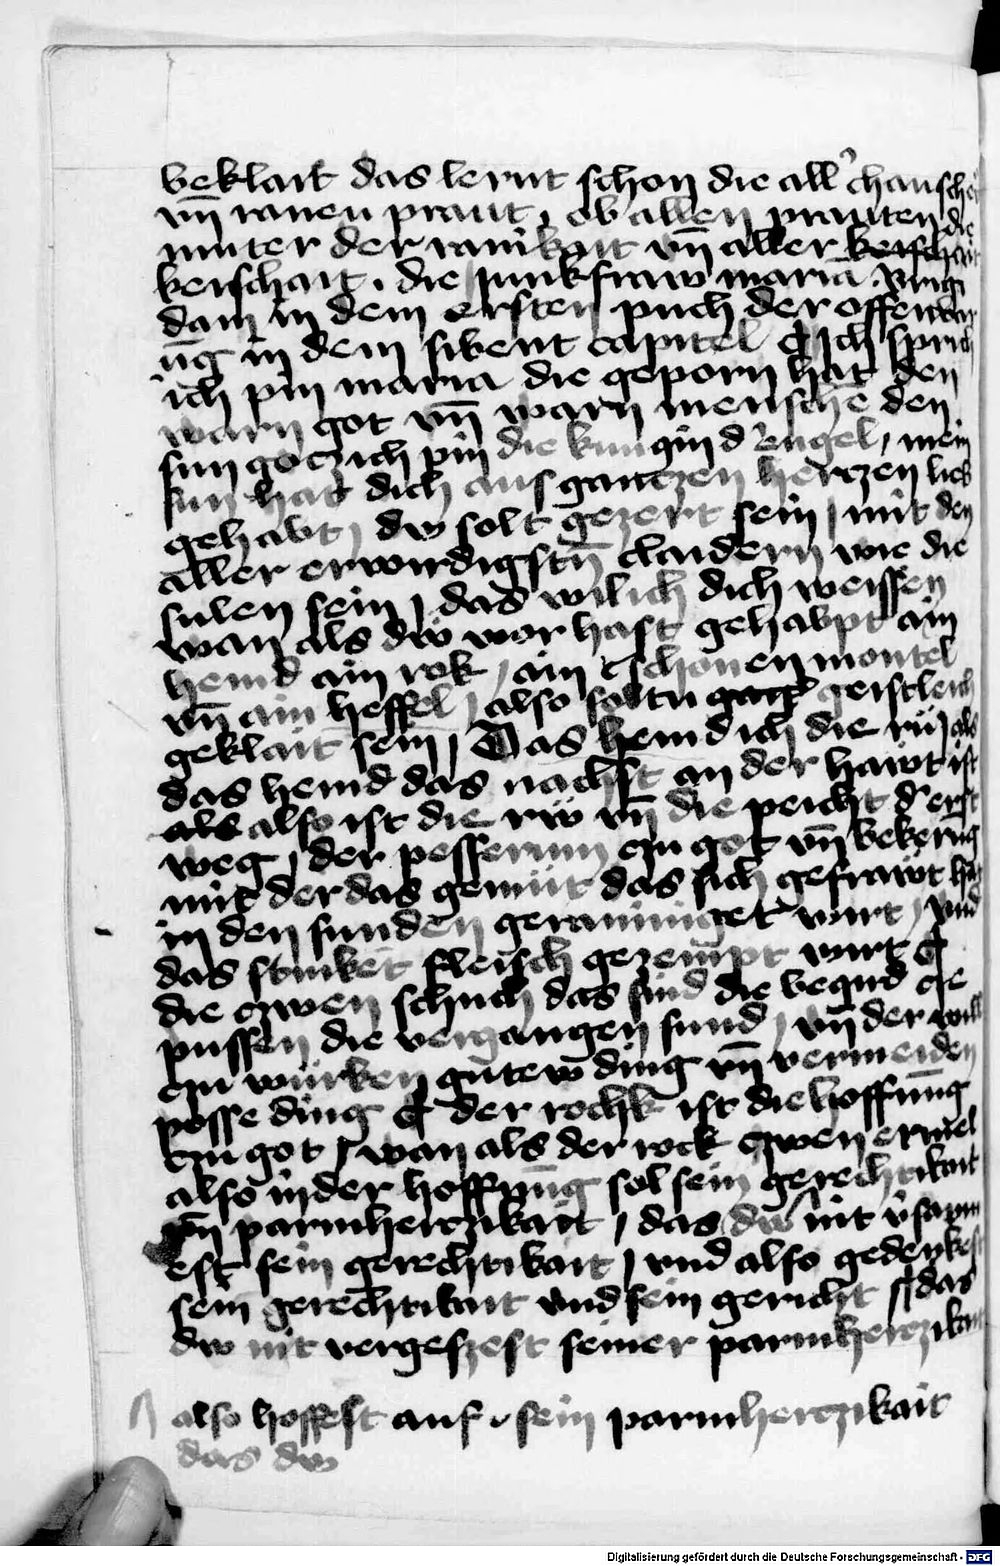 beklait das lernt schon die all' chaüsche
vn̄ rainen praut, ob allen prauten die
muter der rainikait vn̄ aller keisch
keischait, die junkfraw maria. Vinge
dam in dem ersten puch der offenwar
ūg in dem sibent capitel ¶ Ich sprich
ich pin maria die geporn hat den
warn got vn̄ warn menschē den
sun gotz ich pin die kunigin d' engel, mein
sun hat dich aus gantzen hertzen lieb
gehabt, dw solt gezert sein, mit den
aller erwirdigstn̄ claidern wie die
sulen sein, das wil ich dich weissen
wan als dw vor hast gehabpt ain
hemd ain rok, ain schonen montel
vn̄ ain heffel, also soltu geistleich
geklait sein, Das hemd ich die rü, als
das hemd das nachst an der hawt ist
als also ist die rw vn̄ die peicht d' erst
weg, der pesserung czu got vn̄ bekerūg
mit der das gemüt das sich gefrawt hat
in den sunden gerainiget wirt, vnd
das stinket fleisch gezempt wirt ¶
die czwen schuch das sind die begird cze
pussen die vergangen sund, vn̄ der will
czu würken gütew ding vn̄ vermeiden
posse ding ¶ der rochk ist die hoffnūg
czu got, wan als der rock czwen ermel
also in der hoffnūg sol sein gerechtikait
vn̄ parmhertzikait, das dw nit v'saum
est sein gerechtikait, vnd also gedenkest
sein gerechtikait vnd sein gericht das
dw nit vergeszest seiner parmhertzikait
also hoffest auf sein parmhertzikait
das dw
Digitalisierung gefördert durch die Deutsche Forschungsgemeinschaft - DFG